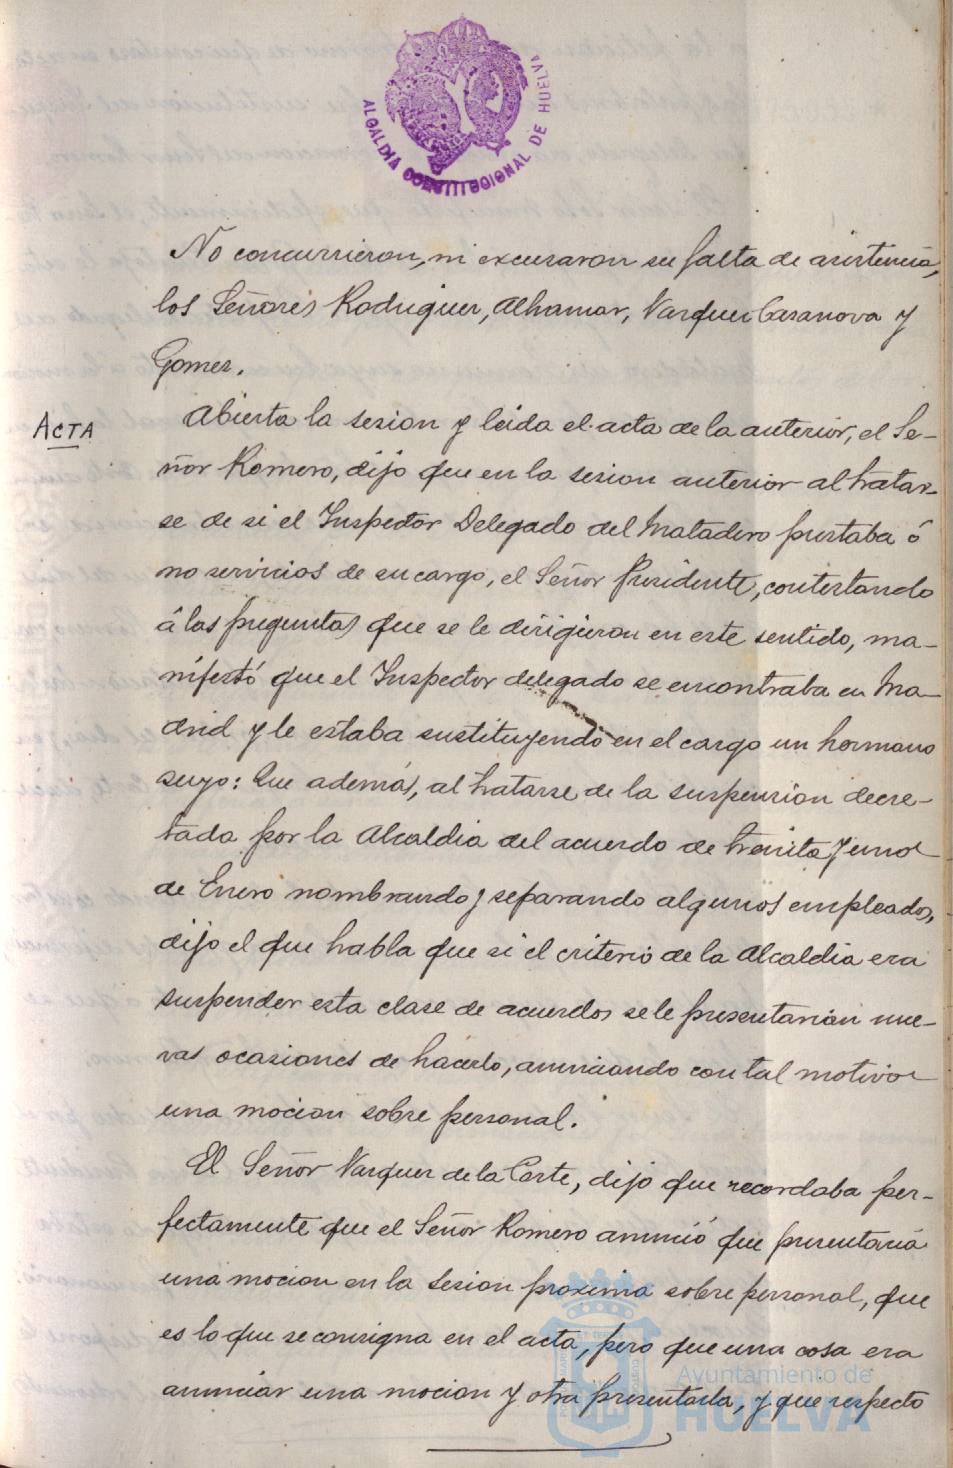 ALCALDIA CONSTITUCIONAL DE HUELVA
No concurrieron, ni excusaron su falta de asistencia,
los Señores Rodriguez, Alhamar, Vazquez Casanova y
Gomez.
ACTA
Abierta la sesion y leida el acta de la anterior, el Se-
ñor Romero, dijo que en la sesion anterior al tratar-
se de si el Inspector Delegado del Matadero prestaba ó
no servicios de su cargo, el Señor Presidente, contestando
á las preguntas que se le dirigieron en este sentido, ma-
nifestó que el Inspector delegado se encontraba en Ma-
drid y le estaba sustituyendo en el cargo un hermano
suyo: Que además, al tratarse de la suspension decre-
tada por la Alcaldia del acuerdo de treinta y uno
de Enero nombrando y separando algunos empleados,
dijo el que habla que si el criterio de la Alcaldia era
suspender esta clase de acuerdos se le presentarian nue-
vas ocasiones de hacerlo, anunciando con tal motivo
una mocion sobre personal.
El Señor Vazquez de la Corte, dijo que recordaba per-
fectamente que el Señor Romero anunció que presentaria
una mocion en la sesion proxima sobre personal, que
es lo que se consigna en el acta, pero que una cosa era
anunciar una mocion y otra presentarla, y que respecto
Ayuntamiento de
HUELVA